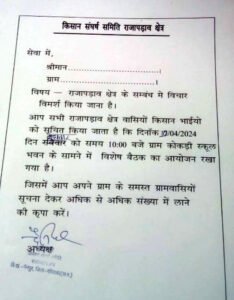 किसान संघर्ष समिति राजापड़ाव क्षेत्र
सेवा में,
श्रीमान
ग्राम
विषय — राजापड़ाव क्षेत्र के सम्बंध में विचार
विमर्श किया जाना है।
आप सभी राजापड़ाव क्षेत्र वासियों किसान भाईयो
को सूचित किया जाता है कि दिनाँक 17/04/2024
दिन शनिवार को समय 10:00 बजे ग्राम कोकड़ी स्कूल
भवन के सामने में विशेष बैठक का आयोजन रखा
गया है।
जिसमें आप अपने ग्राम के समस्त ग्रामवासियों
सूचना देकर अधिक से अधिक संख्या में लाने
की कृपा करें।
अध्यक्ष